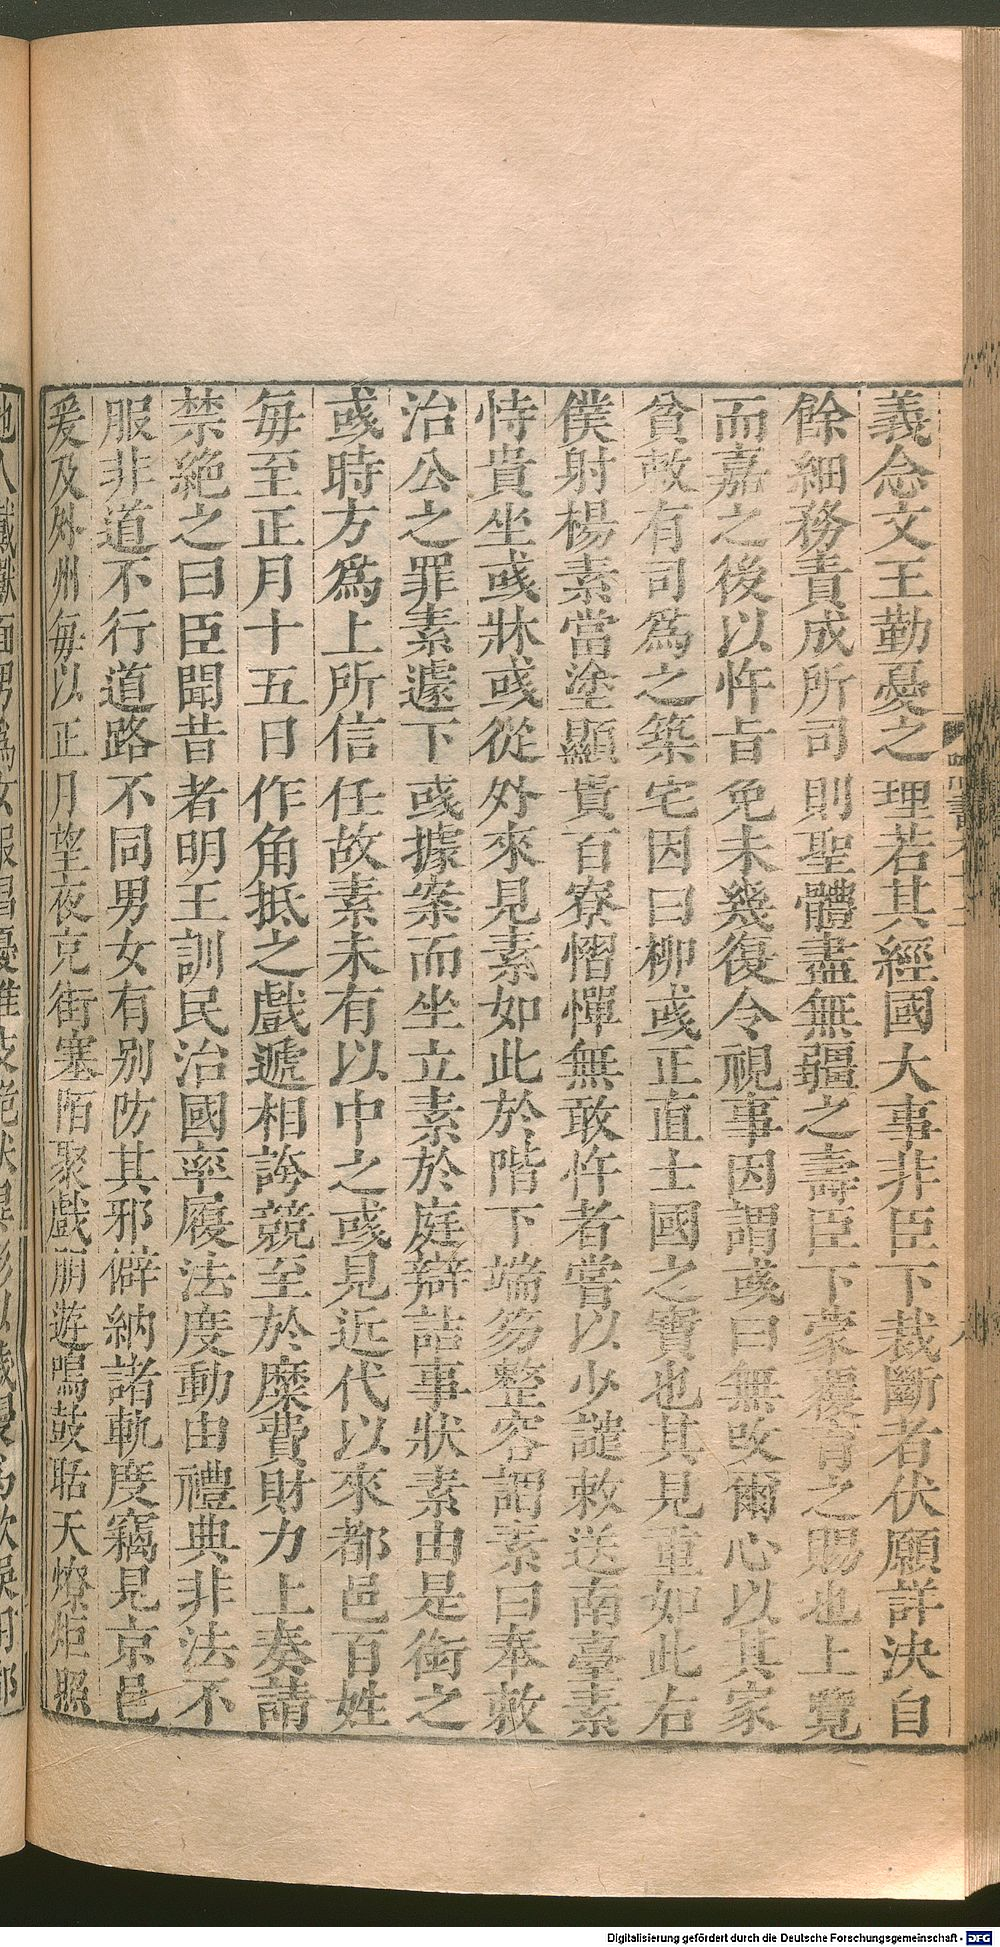 義念文王勤憂之理若其經國大事非臣下裁斷者伏願詳決自
餘細務責成所司則聖體盡無疆之壽臣下蒙覆育之賜也上覽
而嘉之後以忤旨免未幾復令視事因謂彧曰無改爾心以其家
貧敕有司爲之築宅因曰柳彧正直士國之寶也其見重如此右
僕射楊素當塗顯貴百寮慴憚無敢忤者嘗以少譴敕送南臺素
恃貴坐彧牀彧從外來見素如此於階下端笏整容謂素曰奉敕
治公之罪素遽下彧據案而坐立素於庭辯詰事狀素由是銜之
彧時方爲上所信任故素未有以中之彧見近代以來都邑百姓
每至正月十五日作角抵之戲遞相誇競至於糜費財力上奏請
禁絕之曰臣聞昔者明王訓民治國率履法度動由禮典非法不
服非道不行道路不同男女有別防其邪僻納諸軌度竊見京邑
爰及外州每以正月望夜充街塞陌聚戲朋遊鳴鼓聒天燎炬照
Digitalisierung gefördert durch die Deutsche Forschungsgemeinschaft - DFG